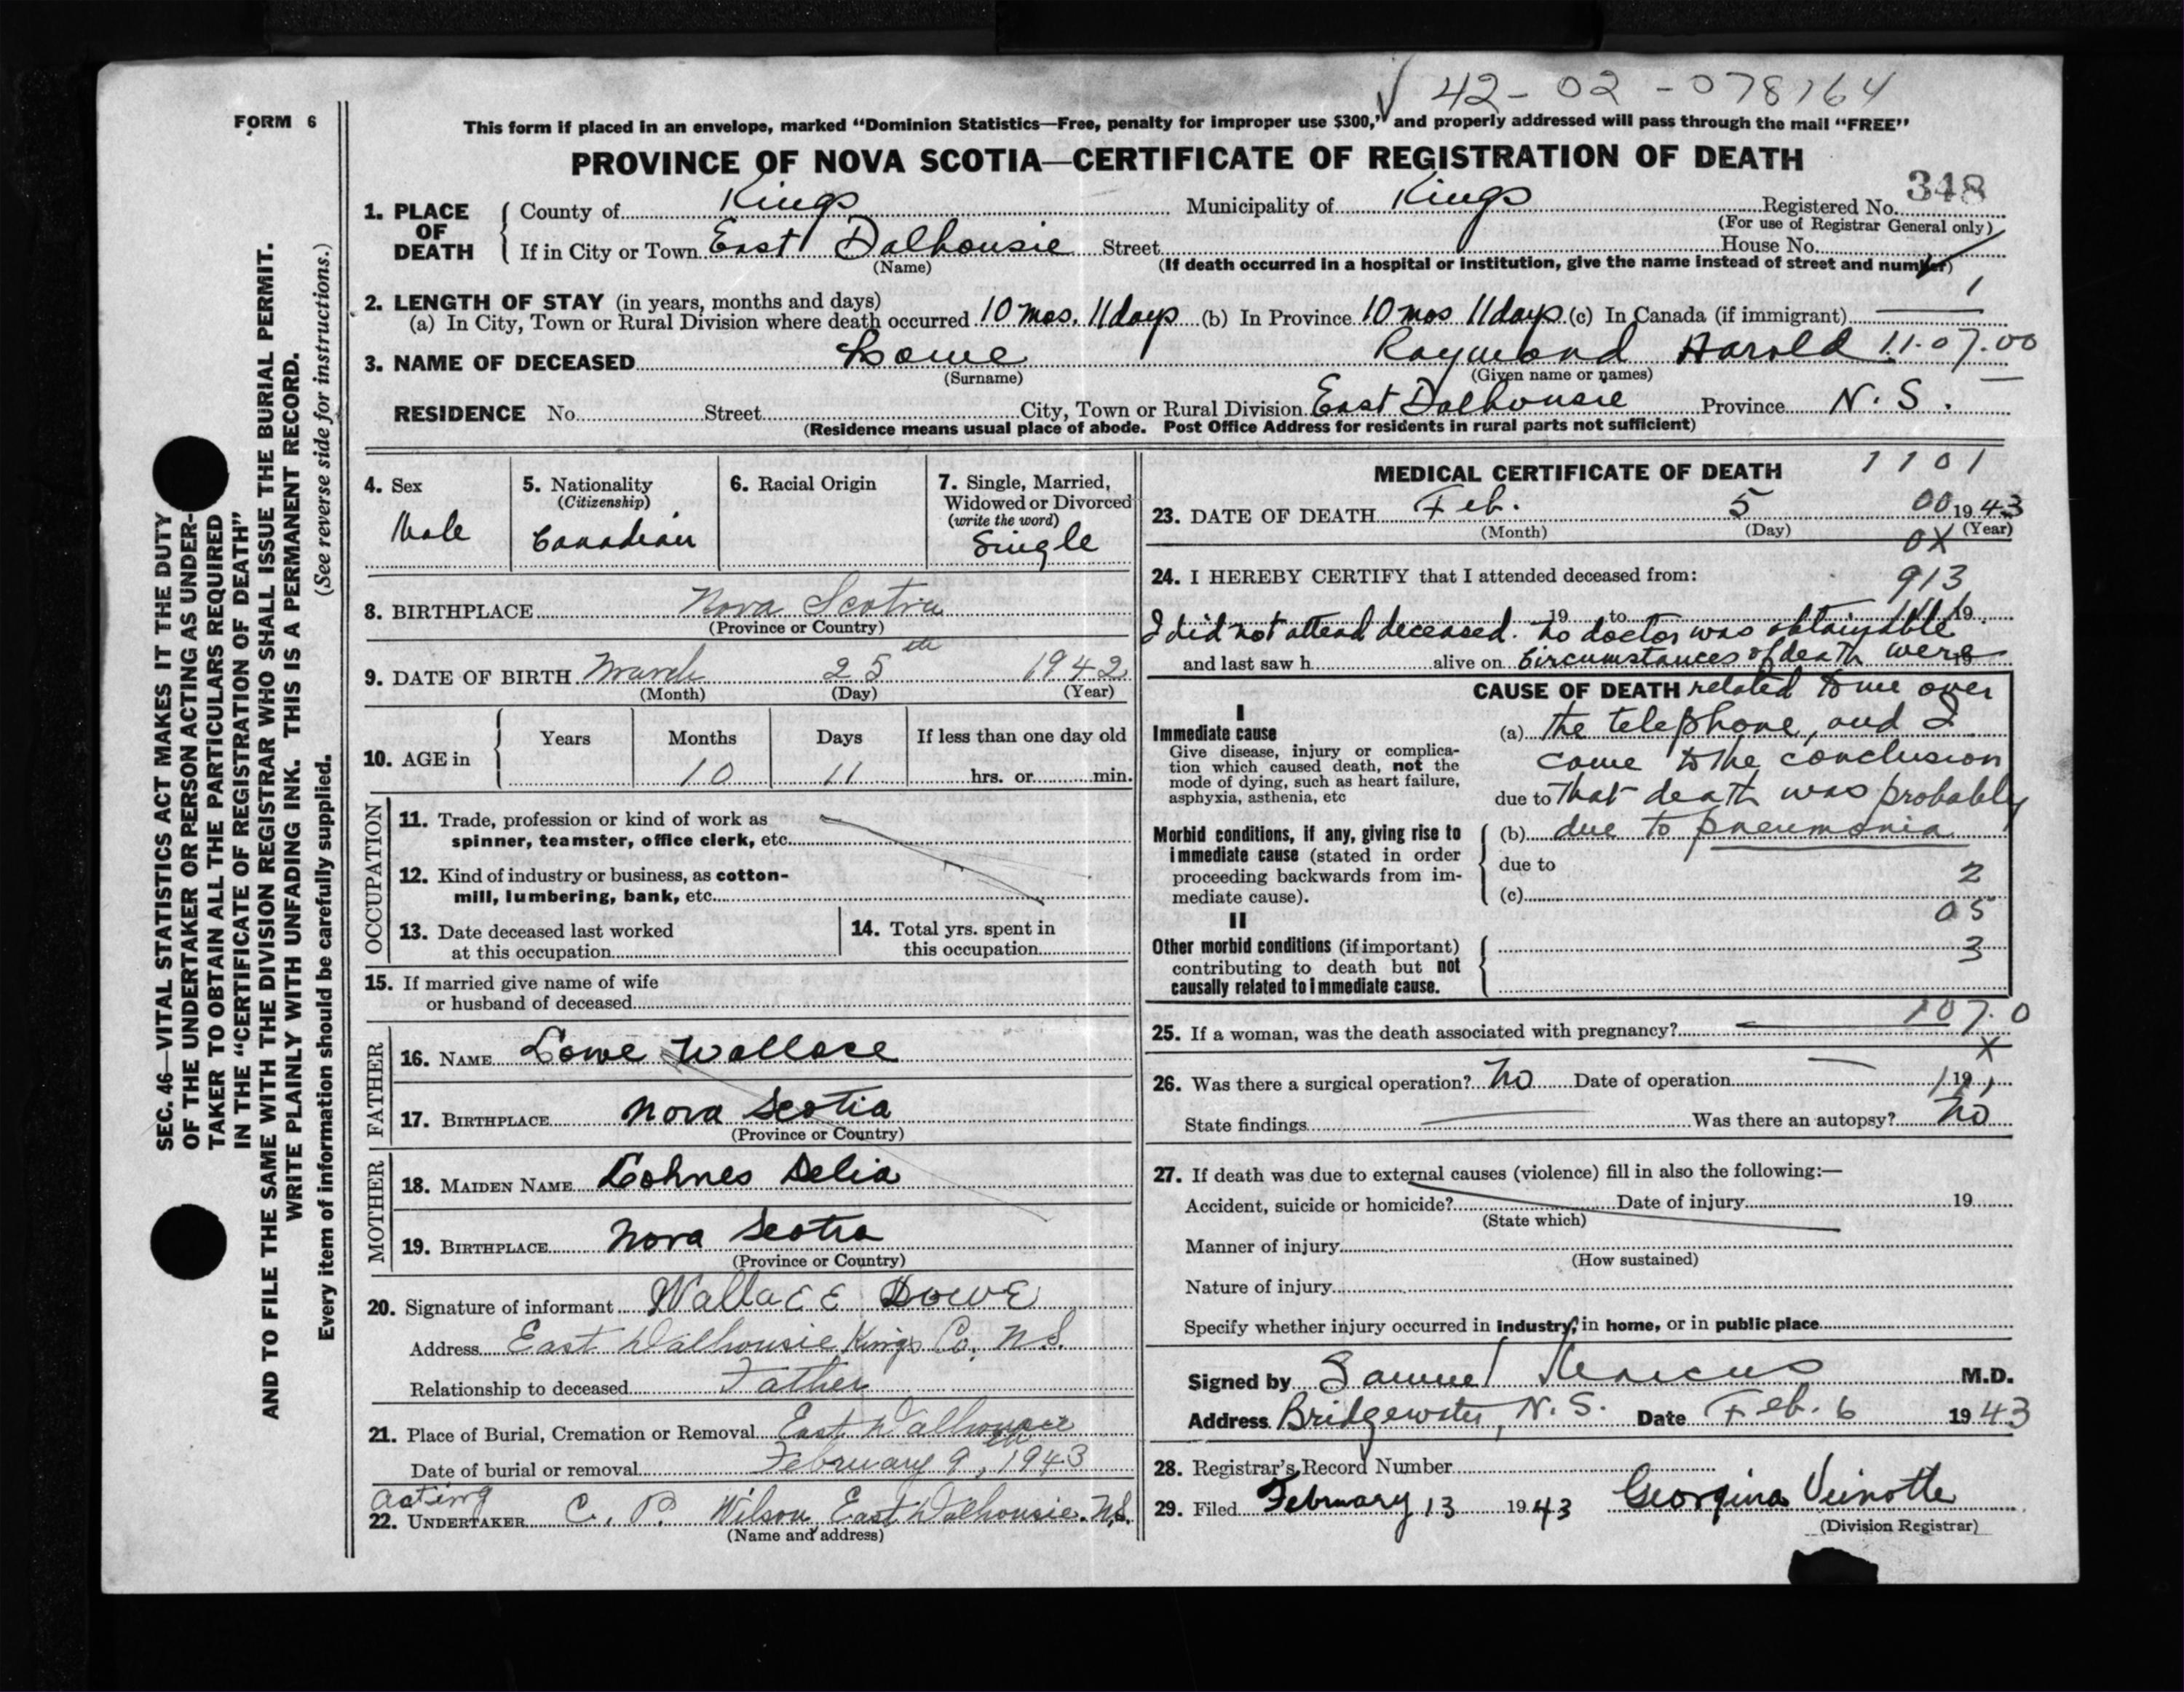 42-02-078164
FORM 6
This form if placed in an envelope, marked "Dominion Statistics—Free, penalty for improper use $300," and properly addressed will pass through the mail "FREE"
PROVINCE OF NOVA SCOTIA—CERTIFICATE OF REGISTRATION OF DEATH
348
1. PLACE OF DEATH { County of Kings Municipality of Kings Registered No.
(For use of Registrar General only)
If in City or Town East Dalhousie Street House No.
(Name) (If death occurred in a hospital or institution, give the name instead of street and number)
1
2. LENGTH OF STAY (in years, months and days)
(a) In City, Town or Rural Division where death occurred 10 mos. 11 days (b) In Province 10 mos 11 days (c) In Canada (if immigrant)
3. NAME OF DECEASED Lowe Raymond Harold 11.07.00
(Surname) (Given name or names)
RESIDENCE No. Street City, Town or Rural Division East Dalhousie Province N. S.
(Residence means usual place of abode. Post Office Address for residents in rural parts not sufficient)
SEC. 46—VITAL STATISTICS ACT MAKES IT THE DUTY
OF THE UNDERTAKER OR PERSON ACTING AS UNDER-
TAKER TO OBTAIN ALL THE PARTICULARS REQUIRED
IN THE "CERTIFICATE OF REGISTRATION OF DEATH"
AND TO FILE THE SAME WITH THE DIVISION REGISTRAR WHO SHALL ISSUE THE BURIAL PERMIT.
WRITE PLAINLY WITH UNFADING INK. THIS IS A PERMANENT RECORD.
Every item of information should be carefully supplied. (See reverse side for instructions.)
4. Sex
Male
5. Nationality
(Citizenship)
Canadian
6. Racial Origin
7. Single, Married,
Widowed or Divorced
(write the word)
Single
8. BIRTHPLACE Nova Scotia
(Province or Country)
9. DATE OF BIRTH March 25th 1942
(Month) (Day) (Year)
10. AGE in { Years Months Days If less than one day old
10 11 hrs. or min.
OCCUPATION
11. Trade, profession or kind of work as
spinner, teamster, office clerk, etc.
12. Kind of industry or business, as cotton-
mill, lumbering, bank, etc.
13. Date deceased last worked
at this occupation
14. Total yrs. spent in
this occupation
15. If married give name of wife
or husband of deceased
FATHER
16. NAME Lowe Wallace
17. BIRTHPLACE Nova Scotia
(Province or Country)
MOTHER
18. MAIDEN NAME Lohnes Delia
19. BIRTHPLACE Nova Scotia
(Province or Country)
20. Signature of informant Wallace Lowe
Address East Dalhousie, Kings Co. N.S.
Relationship to deceased Father
21. Place of Burial, Cremation or Removal East Dalhousie
Date of burial or removal February 9th, 1943
acting
22. UNDERTAKER C. P. Wilson East Dalhousie. N.S.
(Name and address)
MEDICAL CERTIFICATE OF DEATH 1101
23. DATE OF DEATH Feb. 5 00 1943
(Month) (Day) (Year)
0X
24. I HEREBY CERTIFY that I attended deceased from: 913
19 to 19
I did not attend deceased. No doctor was obtainable
and last saw h alive on Circumstances of death were 19
CAUSE OF DEATH related to me over
I
Immediate cause
Give disease, injury or complica-
tion which caused death, not the
mode of dying, such as heart failure,
asphyxia, asthenia, etc
(a) the telephone, and I
came to the conclusion
due to that death was probably
Morbid conditions, if any, giving rise to
immediate cause (stated in order
proceeding backwards from im-
mediate cause).
(b) due to pneumonia
due to
2
(c)
05
II
Other morbid conditions (if important)
contributing to death but not
causally related to immediate cause.
3
107.0
25. If a woman, was the death associated with pregnancy?
X
26. Was there a surgical operation? No Date of operation 19
State findings Was there an autopsy? No
27. If death was due to external causes (violence) fill in also the following:—
Accident, suicide or homicide? Date of injury 19
(State which)
Manner of injury
(How sustained)
Nature of injury
Specify whether injury occurred in industry, in home, or in public place
Signed by Samuel Marcus M.D.
Address Bridgewater, N. S. Date Feb. 6 1943
28. Registrar's Record Number
29. Filed February 13 1943 Georgina Veinotte
(Division Registrar)